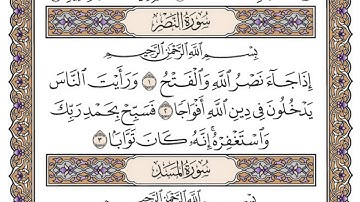 سُورَةُ النَّصْرِ
بِسْمِ اللَّهِ الرَّحْمَٰنِ الرَّحِيمِ
إِذَا جَاءَ نَصْرُ اللَّهِ وَالْفَتْحُ ١ وَرَأَيْتَ النَّاسَ
يَدْخُلُونَ فِي دِينِ اللَّهِ أَفْوَاجًا ٢ فَسَبِّحْ بِحَمْدِ رَبِّكَ
وَاسْتَغْفِرْهُ ۚ إِنَّهُ كَانَ تَوَّابًا ٣
سُورَةُ المَسَدِ
بِسْمِ اللَّهِ الرَّحْمَٰنِ الرَّحِيمِ